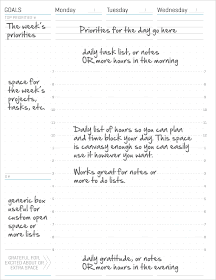 GOALS
Monday
Tuesday
Wednesday
TOP PRIORITIES
The week's
priorities
Priorities for the day go here
daily task list, or notes
OR more hours in the morning
space for
the week's
projects,
tasks, etc.
Daily list of hours so you can plan
and time block your day. This space
is canvasy enough so you can easily
use it however you want.
Works great for notes or
more to do lists.
generic box
useful for
custom open
space or
more lists
GRATEFUL FOR,
EXCITED ABOUT OR
EXTRA SPACE
daily gratitude, or notes
OR more hours in the evening